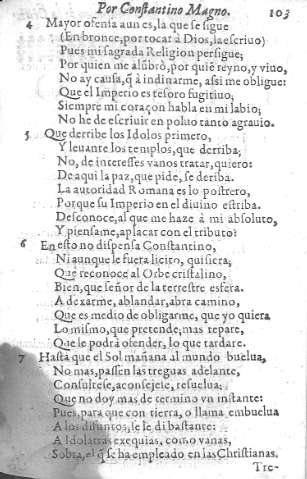 Por Constantino Magno. 103
4 Mayor ofensa aun es, la que se sigue
(En bronce, por tocar à Dios, la escriuo)
Pues mi sagrada Religion persigue;
Por quien me alũbrò, por quiẽ reyno, y viuo,
No ay causa, q̃ à indinarme, assi me obligue:
Que el Imperio es tesoro fugitiuo,
Siempre mi coraçon habla en mi labio;
No he de escriuir en poluo tanto agrauio.
5 Que derribe los Idolos primero,
Y leuante los templos, que derriba;
No, de interesses vanos tratar, quiero:
De aqui la paz, que pide, se deriba.
La autoridad Romana es lo postrero,
Porque su Imperio en el diuino estriba.
Desconoce, al que me haze à mi absoluto,
Y piensame, aplacar con el tributo?
6 En esto no dispensa Constantino,
Ni aunque le fuera licito, quisiera;
Que reconoce al Orbe cristalino,
Bien, que señor de la terrestre esfera.
A dexarme, ablandar, abra camino,
Que es medio de obligarme, que yo quiera
Lo mismo, que pretende; mas repare,
Que le podrà ofender, lo que tardare.
7 Hasta que el Sol mañana al mundo buelua,
No mas, passen las treguas adelante,
Consultese, aconsejele, resuelua;
Que no doy mas de termino vn instante:
Pues, para que con tierra, o llama embuelua
A los difuntos, se le di bastante:
A Idolatras exequias, como vanas,
Sobra, el q̃ se ha empleado en las Christianas.
Tre-